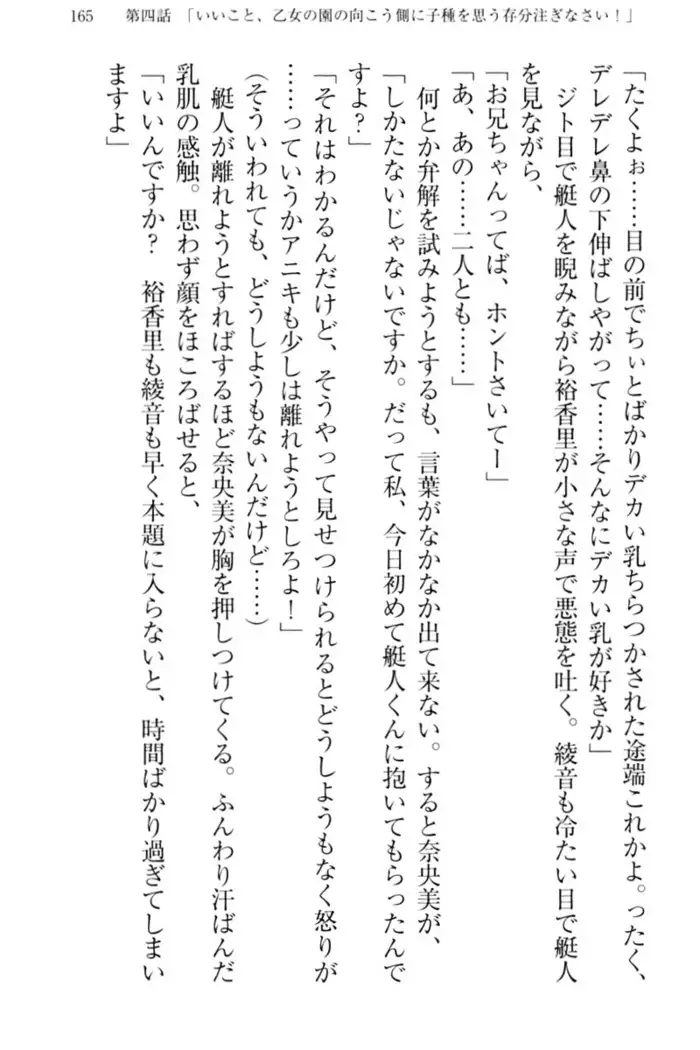 165　第四話　「いいこと、乙女の園の向こう側に子種を思う存分注ぎなさい！」
「たくよぉ……目の前でちぃとばかりデカい乳ちらつかされた途端これかよ。ったく、
デレデレ鼻の下伸ばしやがって……そんなにデカい乳が好きか」
　ジト目で艇人を睨みながら裕香里が小さな声で悪態を吐く。綾音も冷たい目で艇人
を見ながら、
「お兄ちゃんってば、ホントさいてー」
「あ、あの……二人とも……」
　何とか弁解を試みようとするも、言葉がなかなか出て来ない。すると奈央美が、
「しかたないじゃないですか。だって私、今日初めて艇人くんに抱いてもらったんで
すよ？」
「それはわかるんだけど、そうやって見せつけられるとどうしようもなく怒りが
……っていうかアニキも少しは離れようとしろよ！」
（そういわれても、どうしようもないんだけど……）
　艇人が離れようとすればするほど奈央美が胸を押しつけてくる。ふんわり汗ばんだ
乳肌の感触。思わず顔をほころばせると、
「いいんですか？　裕香里も綾音も早く本題に入らないと、時間ばかり過ぎてしまい
ますよ」